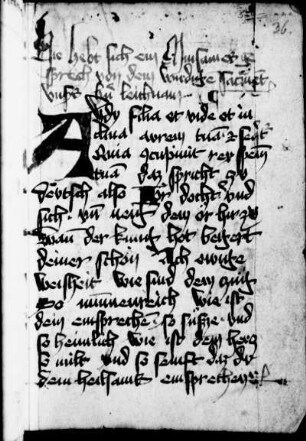 36.
Hie hebt sich ein
sprech von dem wirdige sacrame̅t
Audi filia et vide et in
clina aurem tuam et
Quia co̅cupiuit rex speci
tua̅ daz spricht zu
deutsch also Hor dochter vnd
sich vn̅ neig dein or her zu
wan̅ der kunig hot begert
deiner schon Ach ewige
weisheit wie sind dein
so minnenreich wie ist
dein einsprechen so susse vnd
so heimlich wie ist dein hercz
so milt vnd so senft daz du
dein heilsamt einsprechen